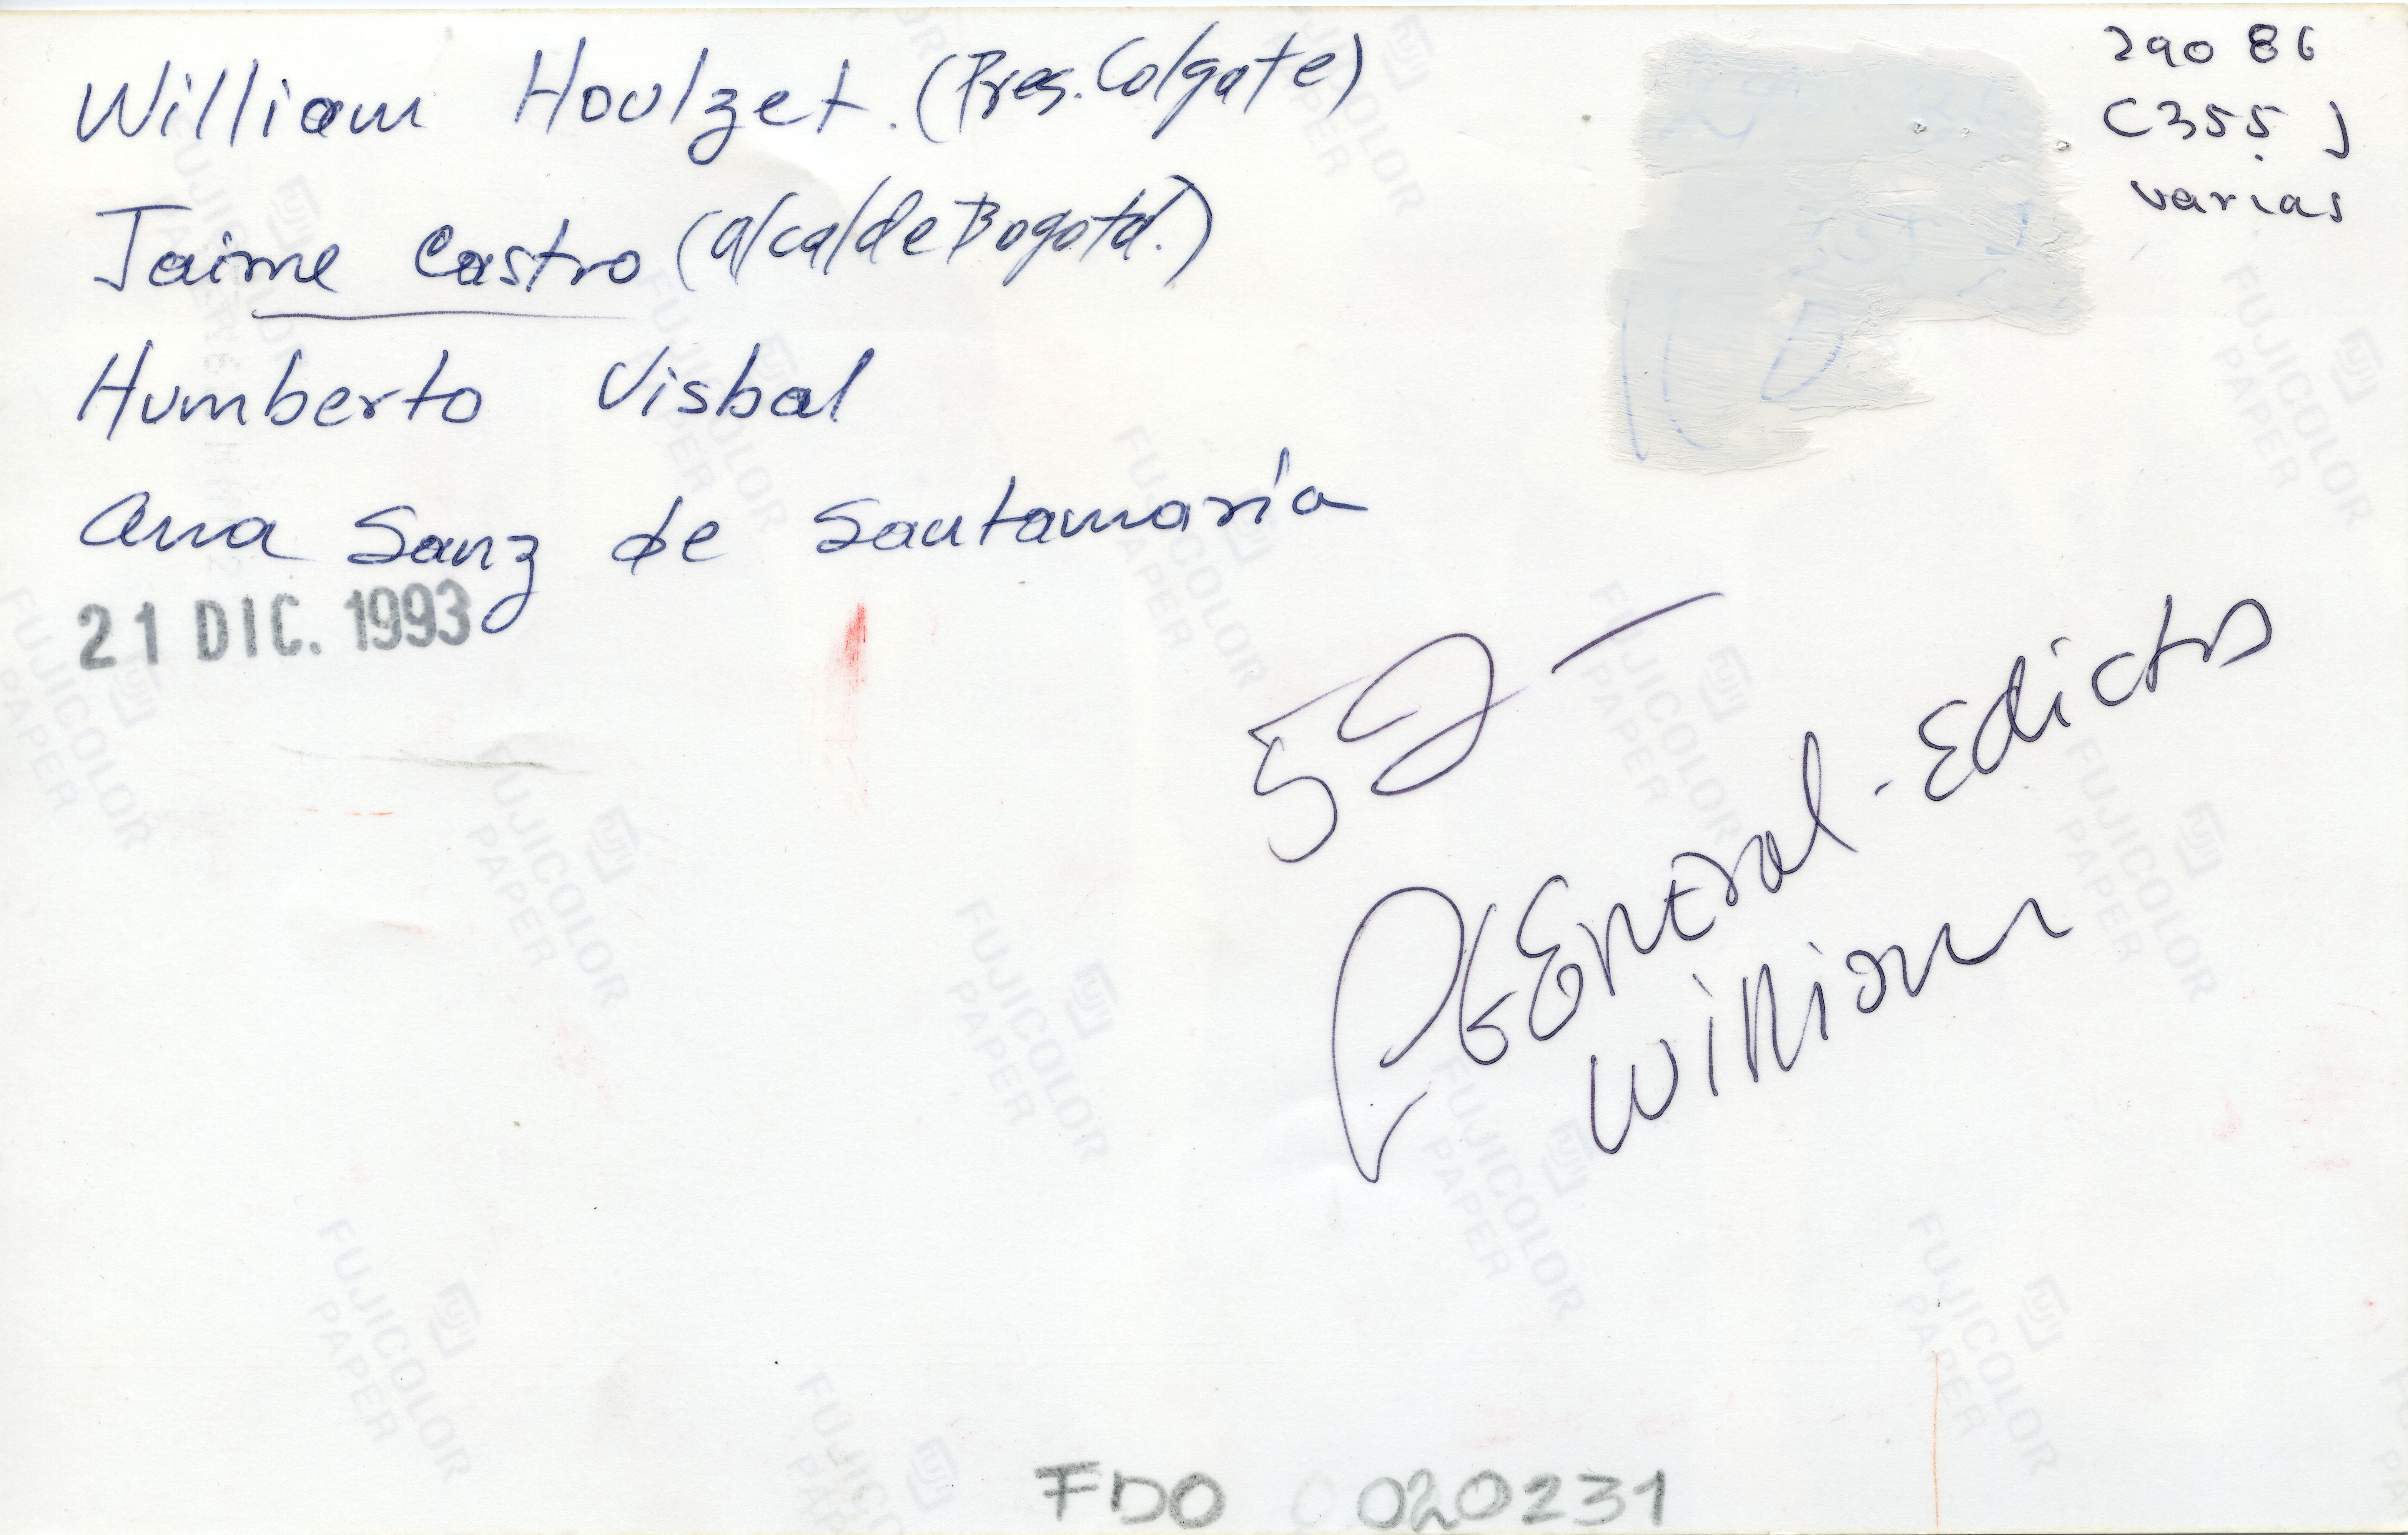 William Houlzet. (Pres. Colgate)
Jaime Castro (Alcalde Bogotá.)
Humberto Visbal
Ana Sanz de Santamaría
21 DIC. 1993
290 86
C355 J
varias
52 —
General - Edictos
William
FDO 020231
FUJICOLOR
PAPER